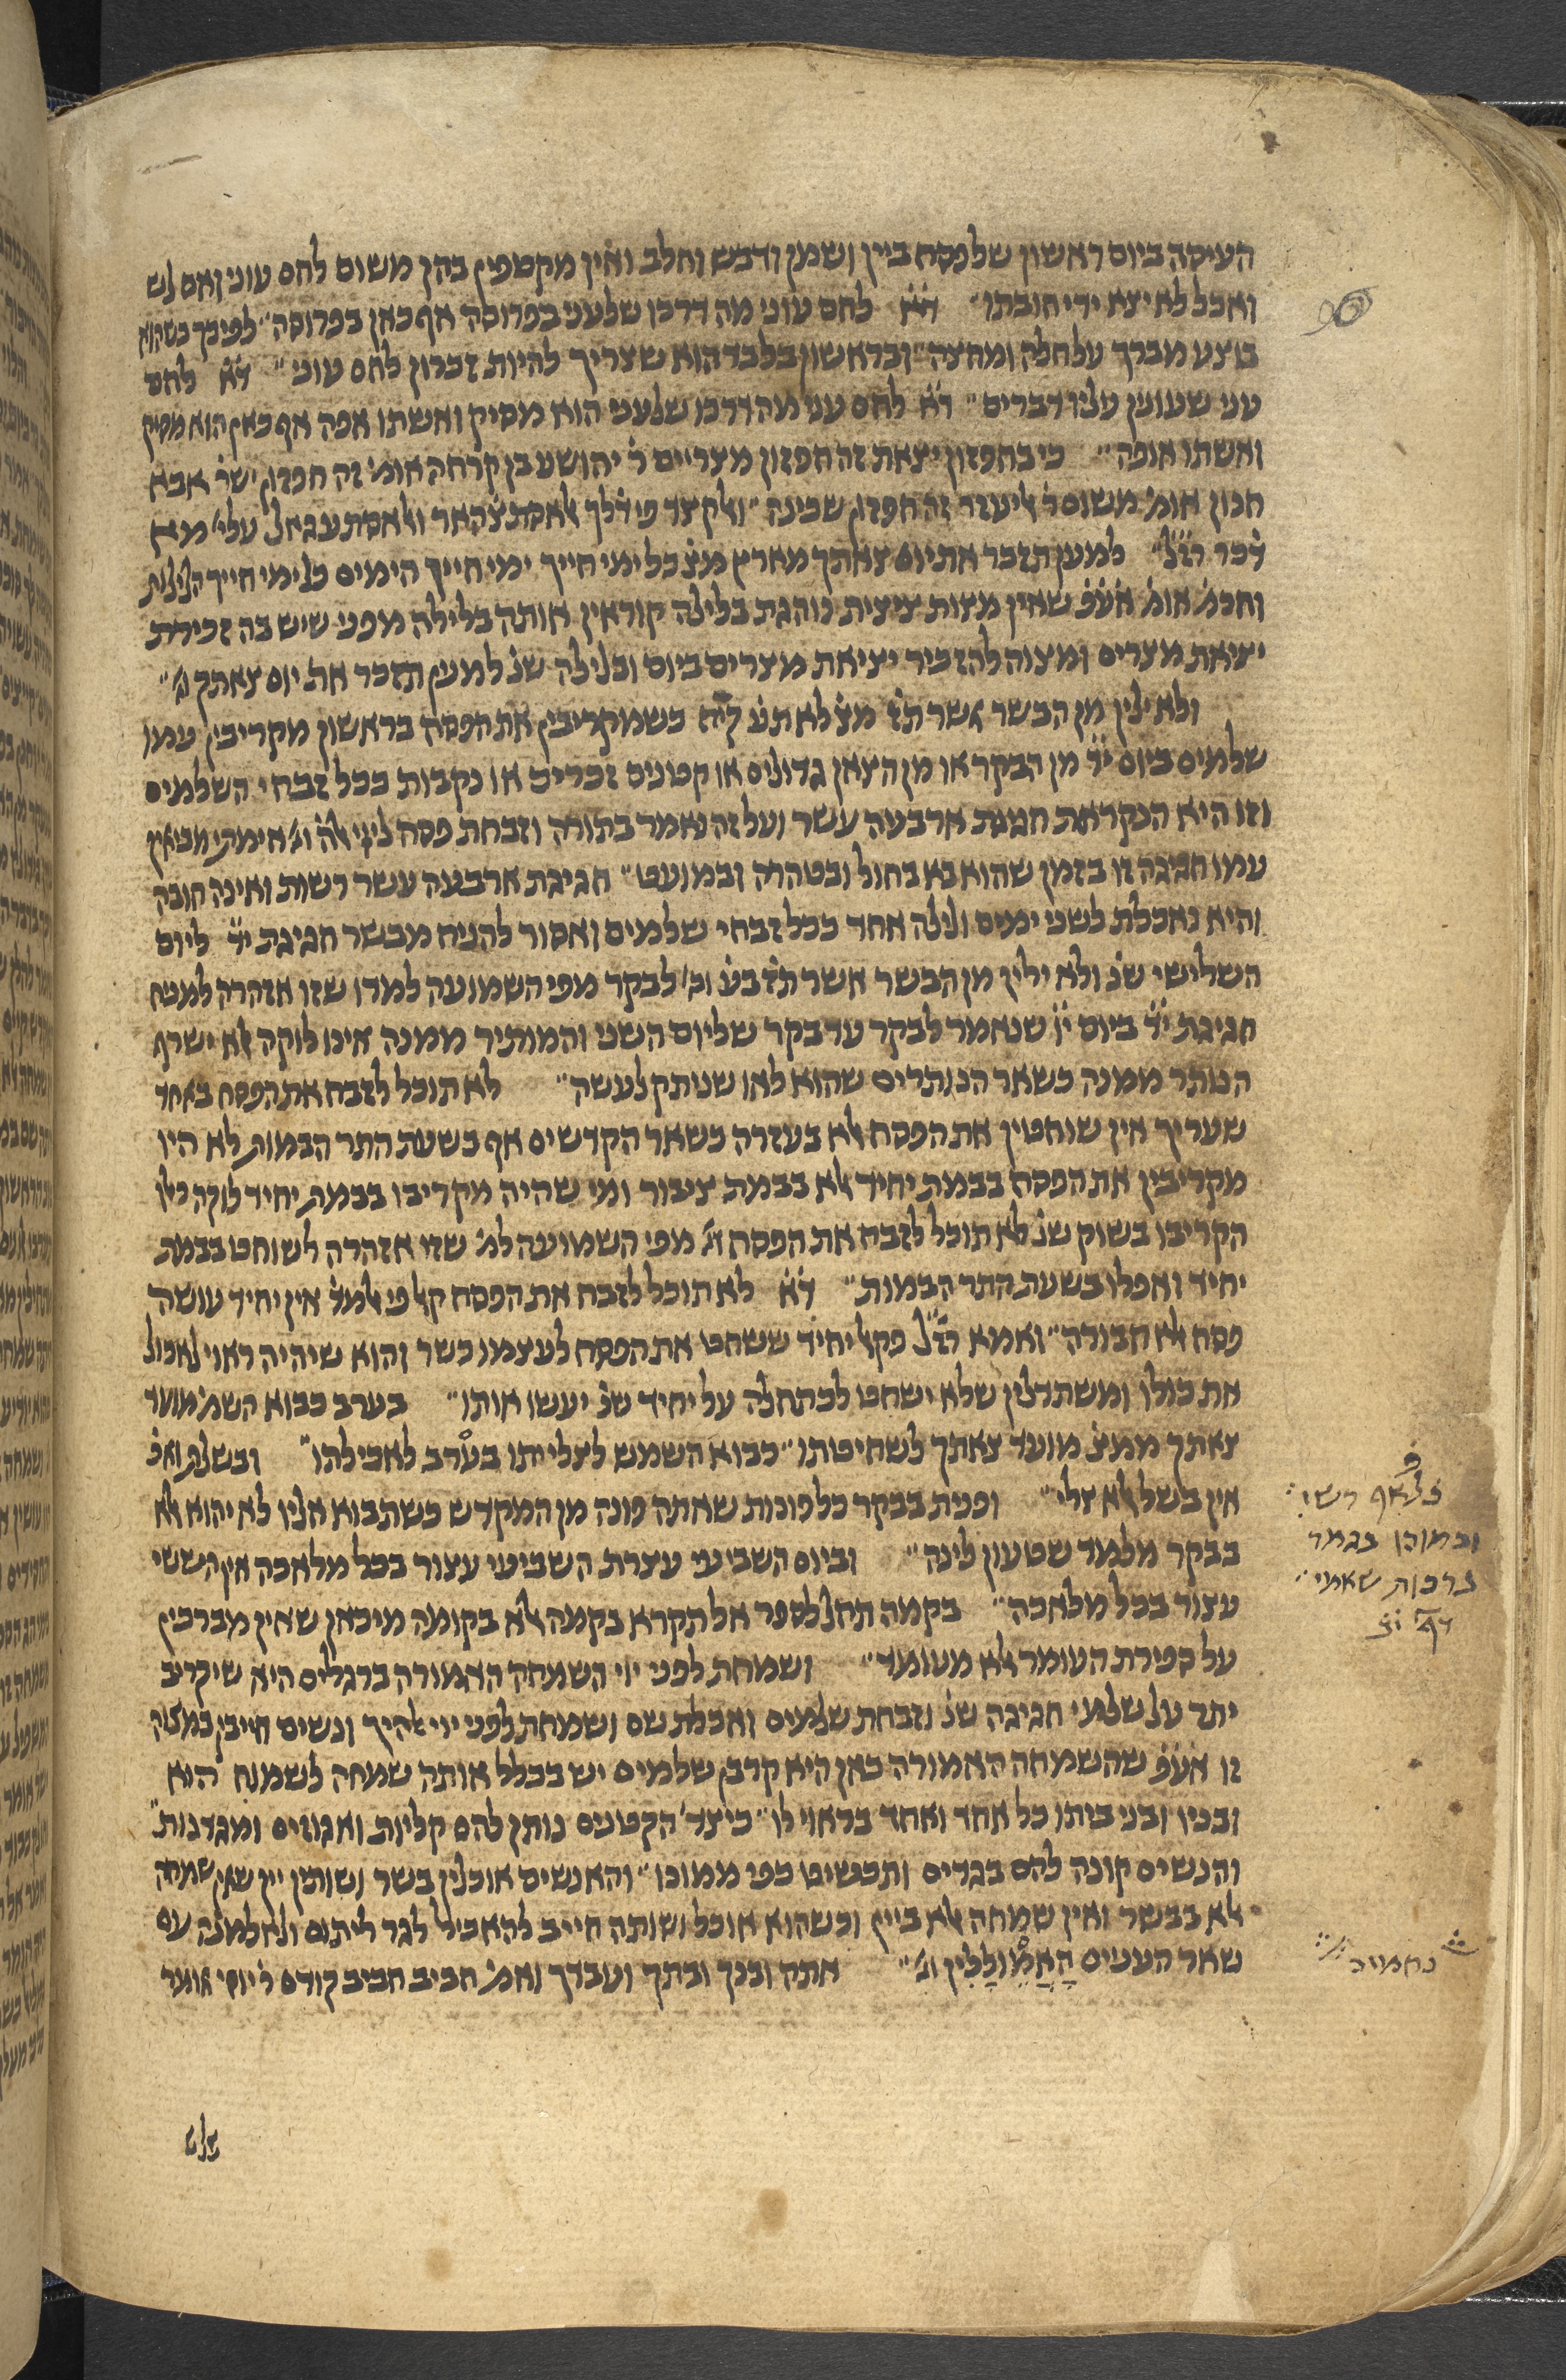 העיסה ביום ראשון שלפסח ביין ושמן ודבש וחלב ואין מקטפין בהן משום לחם עוני ואם לש
ואכל לא יצא ידי חובתו״ ד̇א̇ לחם עוני מה דרכו שלעני בפרוסה אף כאן בפרוסה״ לפיכך כשהוא
בוצע מברך על חלה ומחצה״ ובראשון בלבד הוא שצריך להיות זכרון לחם עוני״ ד̇א̇ לחם
עני שעונין עליו דברים״ ד̇א̇ לחם עני מה דרכו שלעני הוא מסיק ואשתו אפה אף כאן הוא מסיק
ואשתו אופה״ כי בחפזון יצאת זה חפזון מצריים ר׳ יהושע בן קרחה אומ׳ זה חפזון ישר׳ אבא
חנון אומ׳ משום ר׳ אליעזר זה חפזון שכינה״ ואלקצד פי דלך אלאסתצהאר ואלאסתעגאל עלי׳ מא
דכר רז״ל״ למען תזכר את יום צאתך מארץ מצ׳ כל ימי חייך ימי חייך הימים כל ימי חייך הלילות
וחכמ׳ אומ׳ אע̇פ̇ שאין מצות ציצית נוהגת בלילה קוראין אותה בלילה מפני שיש בה זכירת
יציאת מצרים ומצוה להזכיר יציאת מצרים ביום ובלילה שנ׳ למען תזכר את יום צאתך וג׳״
ולא ילין מן הבשר אשר תז׳ מצ׳ לא תע׳ כשמקריבין את הפסח בראשון מקריבין עמו
שלמים ביום י״ד מן הבקר או מן הצאן גדולים או קטנים זכרים או נקבות ככל זבחי השלמים
וזו היא הנקראת חגיגת ארבעה עשר ועל זה נאמר בתורה וזבחת פסח ליי׳ אלה׳ וג׳ אימתי מביאין
עמו חגיגה זו בזמן שהוא בא בחול ובטהרה ובמועט״ חגיגת ארבעה עשר רשות ואינה חובה
והיא נאכלת לשני ימים ולילה אחד ככל זבחי שלמים ואסור להניח מבשר חגיגת י״ד ליום
השלישי שנ׳ ולא ילין מן הבשר אשר תזבע׳ וג׳ לבקר מפי השמועה למדו שזו אזהרה למניח
חגיגת י״ד ביום י״ו שנאמר לבקר עד בקר שליום השני והמותיר ממנה אינו לוקה אלא ישרף
הנותר ממנה כשאר הנותרים שהוא לאו שניתק לעשה״ לא תוכל לזבח את הפסח באחד
שעריך אין שוחטין את הפסח אלא בעזרה כשאר הקדשים אף בשעת התר הבמות לא היו
מקריבין את הפסח בבמת יחיד אלא בבמת ציבור ומי שהיה מקריבו בבמת יחיד לוקה כאלו
הקריבו בשוק שנ׳ לא תוכל לזבח את הפסח וג׳ מפי השמועה למ׳ שזו אזהרה לשוחט בבמת
יחיד ואפלו בשעת התר הבמות״ ד̇א̇ לא תוכל לזבח את הפסח קאל פי אלתלמ׳ אין יחיד עושה
פסח אלא חבורה״ ואמא רז״ל פקאל יחיד ששחט את הפסח לעצמו כשר והוא שיהיה ראוי לאכול
את כולו ומשתדלין שלא ישחט לכתחלה על יחיד שנ׳ יעשו אותו״ בערב כבוא השמ׳ מועד
צאתך ממצ׳ מועד צאתך לשחיטתו״ כבוא השמש לצלייתו בערב לאכילתו״ ובשלת ואכ׳
אין בשל אלא צלי״ ופנית בבקר כל פונות שאתה פונה מן המקדש כשתבוא אליו לא יהוא אלא
בבקר מלמד שטעון לינה״ וביום השביעי עצרת השביעי עצור בכל מלאכה אין הששי
עצור בכל מלאכה״ בקמה תחל לספר אל תקרא בקמה אלא בקומה מיכאן שאין מברכין
על ספירת העומר אלא מעומד״ ושמחת לפני יוי השמחה האמורה ברגלים היא שיקריב
יתר על שלמי חגיגה שנ׳ וזבחת שלמים ואכלת שם ושמחת לפני יוי אלהיך ונשים חייבין במצוה
זו אע̇פ̇ שהשמחה האמורה כאן היא קרבן שלמים יש בכלל אותה שמחה לשמוח הוא
ובניו ובני ביתו כל אחד ואחד בראוי לו״ כיצד׳ הקטנים נותן להם קליות ואגוזים ומגדנות״
והנשים קונה להם בגדים ותכשיט כפי ממונו״ והאנשים אוכלין בשר ושותין יין שאין שמחה
אלא בבשר ואין שמחה אלא ביין וכשהוא אוכל ושותה חייב להאכיל לגר ליתום ולאלמנה עם
שאר העניים הָאֲמֵוּלָלִין וג׳״ אתה ובנך ובתך ועבדך ואמ׳ חביב חביב קודם ר׳ יוסי אומר
שלש
וכמוכן בגמר
ברכות
נחמיה